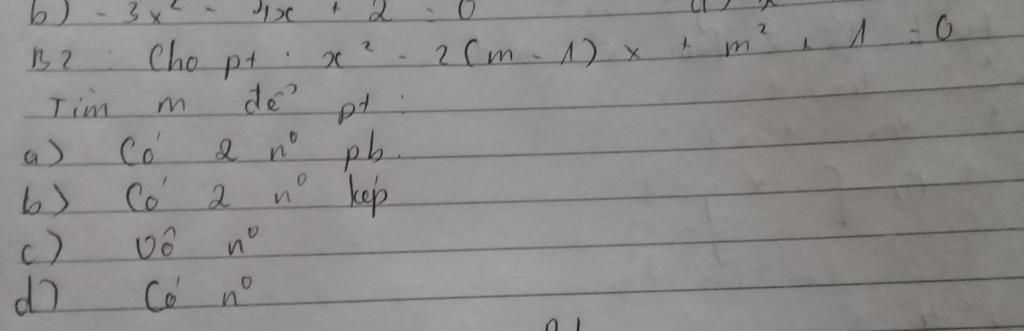 b) - 3x² - 4x + 2 = 0
B2: Cho pt: x² - 2(m - 1)x + m² + 1 = 0
Tìm m để pt:
a) Có 2 nº pb.
b) Có 2 nº kép
c) Vô nº
d) Có nº